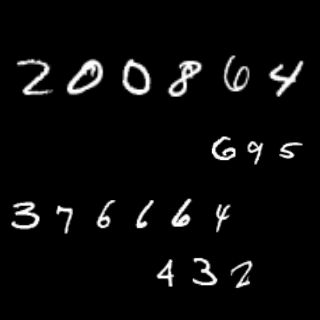 200864
695
376664
432